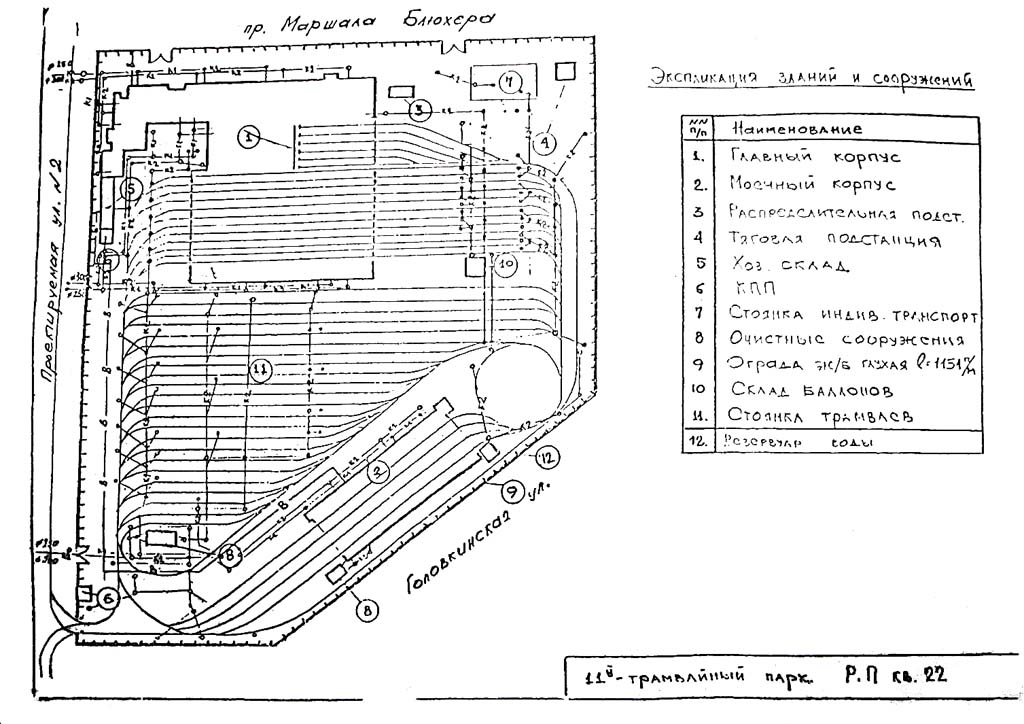 пр. Маршала Блюхера
Экспликация зданий и сооружений
NN п/п Наименование
1. Главный корпус
2. Моечный корпус
3 Распределительная подст.
4 Тяговая подстанция
5 Хоз. склад
6 КПП
7 Стоянка индив. транспорт
8 Очистные сооружения
9 Ограда ж/б глухая l=1151 м
10 Склад баллонов
11. Стоянка трамваев
12. Резервуар воды
Проектируемая ул. N 2
Головкинская ул.
1
2
3
4
5
6
6
7
8
8
9
10
11
12
11й-трамвайный парк. Р.П кв. 22